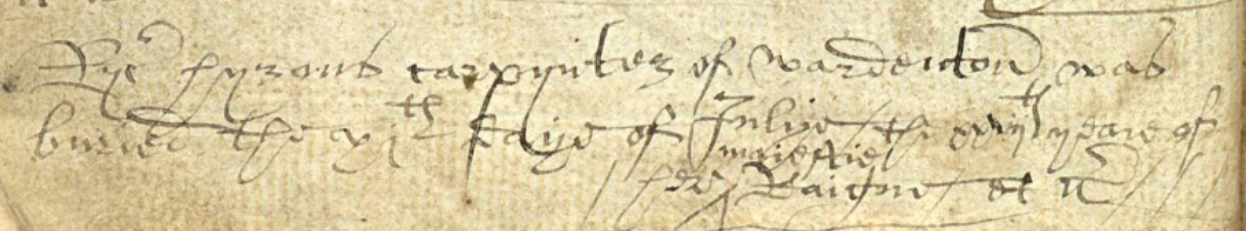 Ryc hyrons carpynter of wardenton was
buried the xjth daye of Julye the xxvijth yeare of
maiestie
her Raigne et c